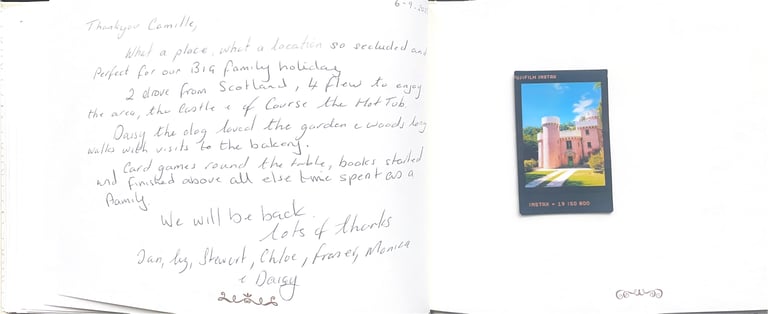 6-9-202
Thankyou Camille,
What a place, what a location so secluded and
Perfect for our BIG family holiday
2 drove from Scotland, 4 flew to enjoy
the area, the Castle & of Course the Hot Tub.
Daisy the dog loved the garden & woods long
walks with visits to the bakery.
Card games round the table, books started
and finished above all else time spent as a
Family
We will be back.
lots of thanks
Stewart, Chloe, Fraser, Monica
& Daisy
FUJIFILM INSTAX
INSTAX • 19 ISO 800